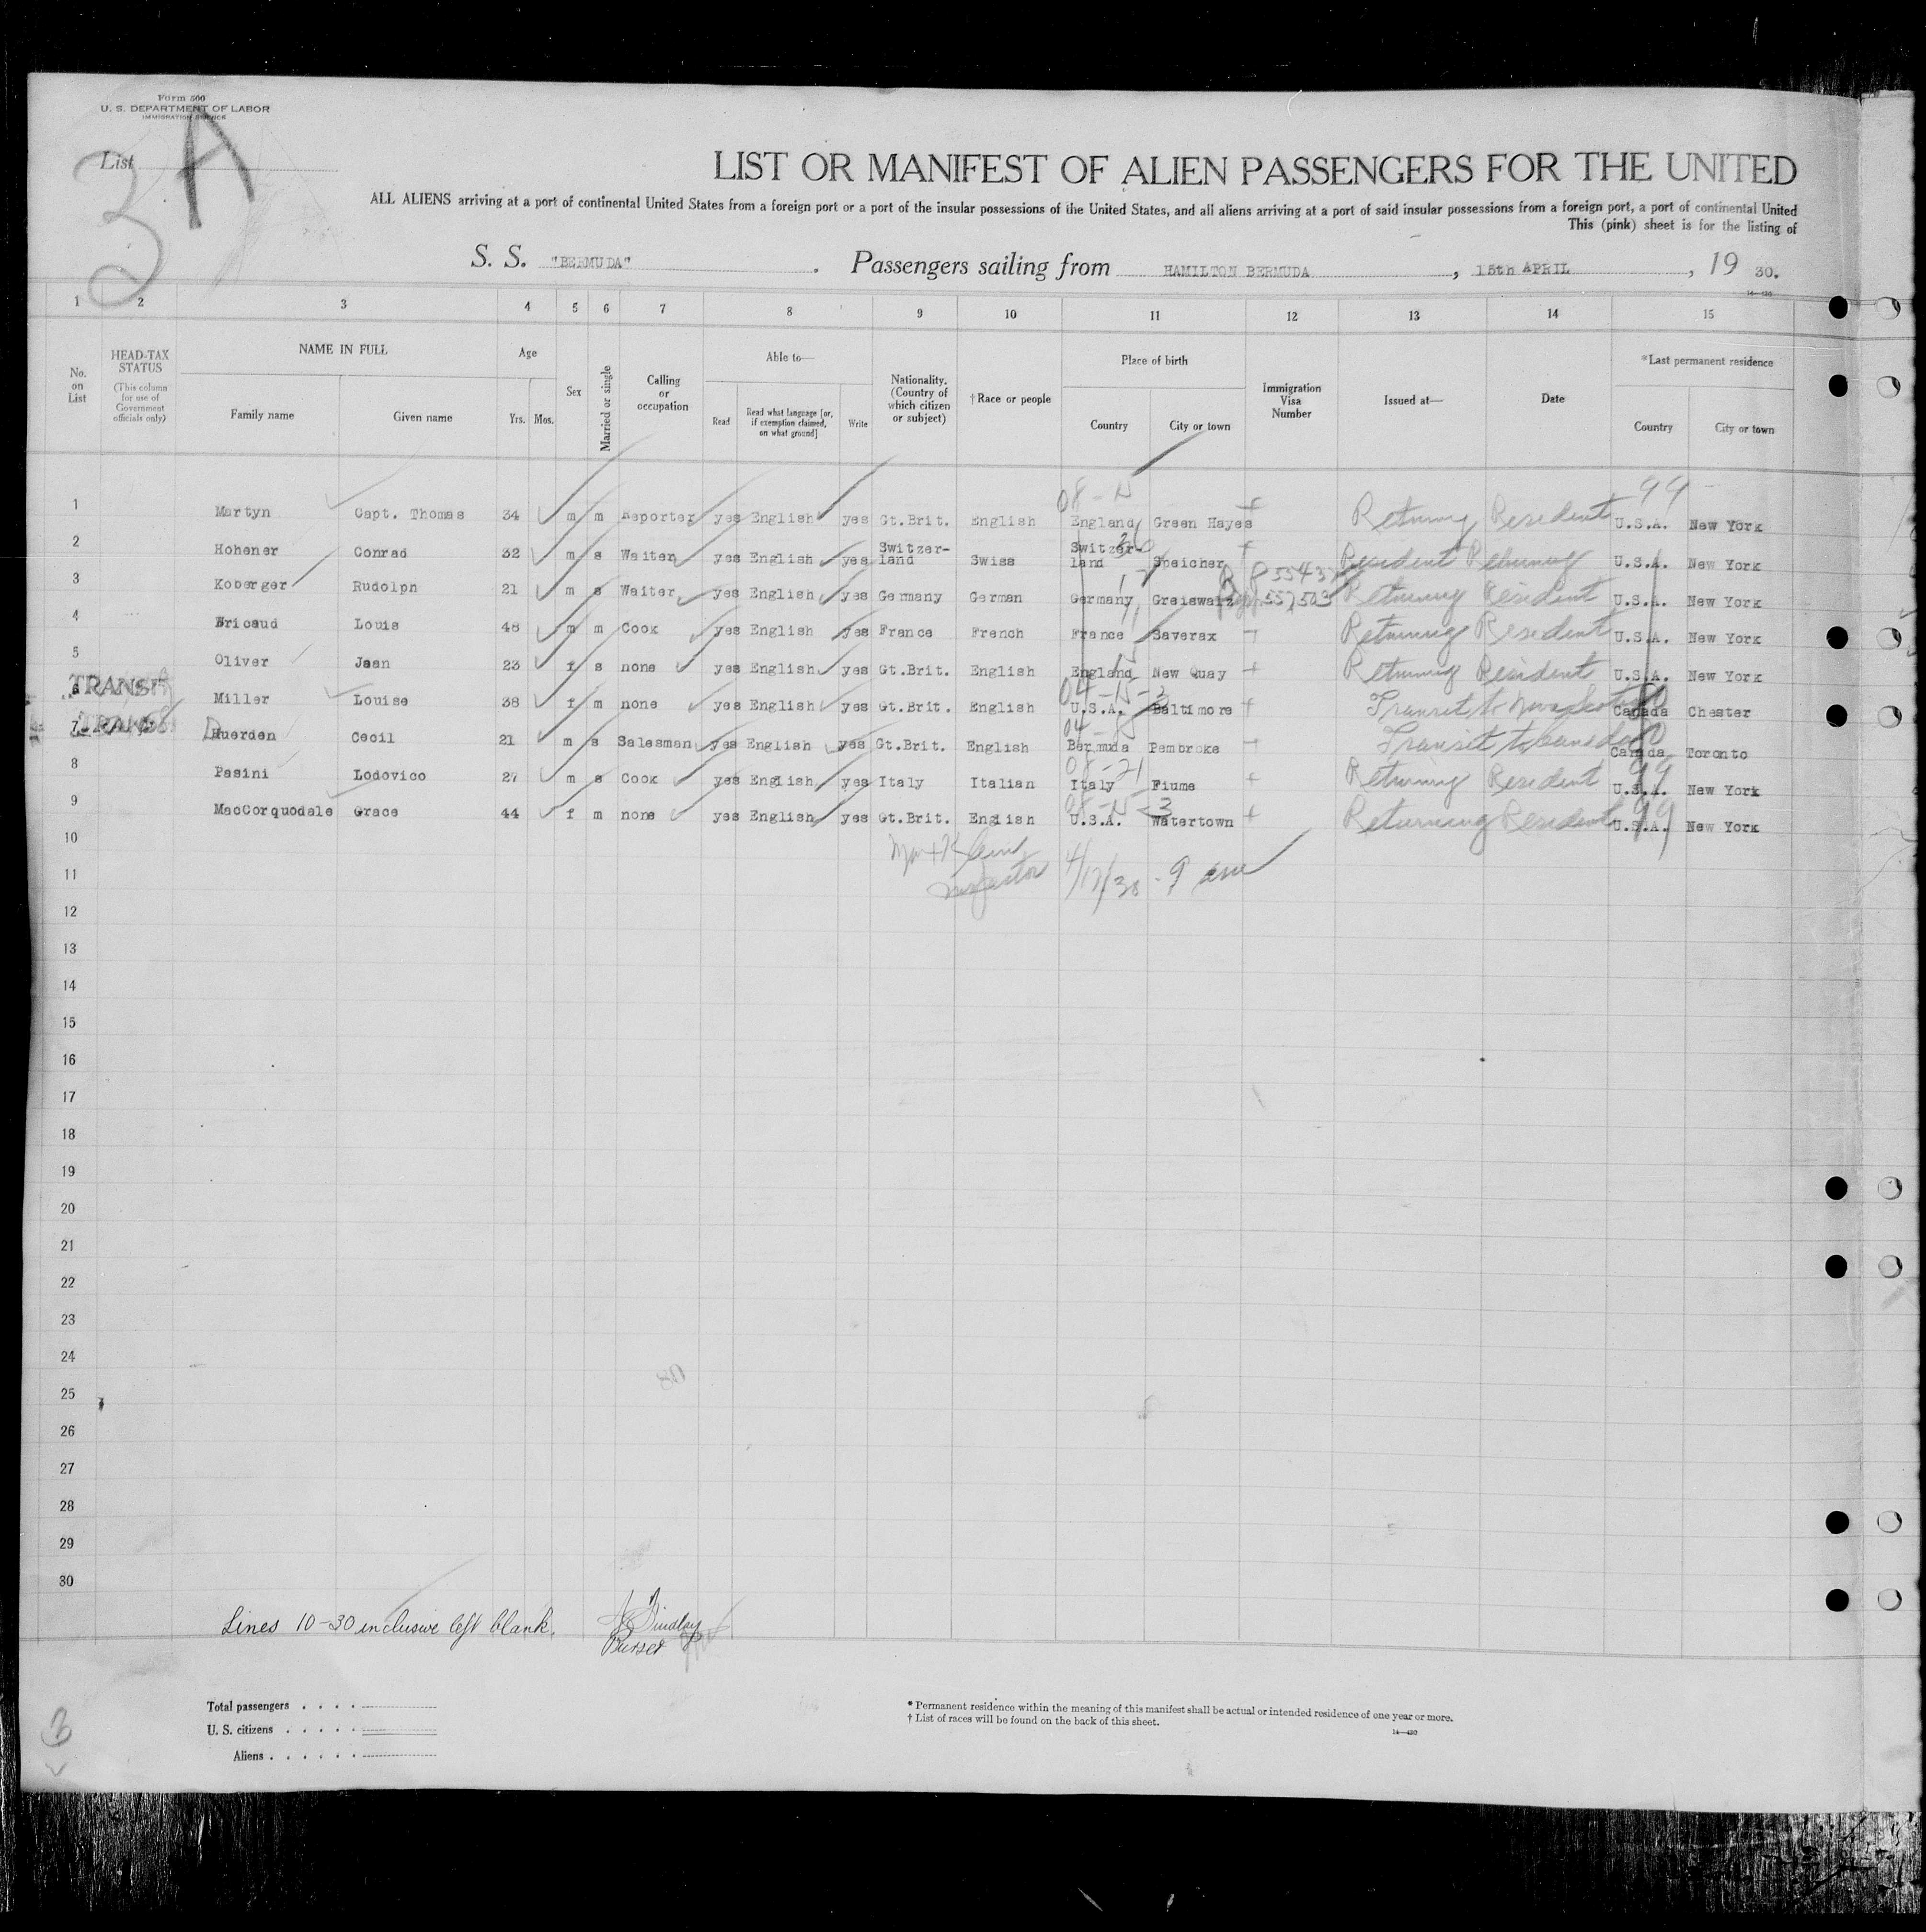 Form 500
U. S. DEPARTMENT OF LABOR
IMMIGRATION SERVICE
List
3 A
LIST OR MANIFEST OF ALIEN PASSENGERS FOR THE UNITED
ALL ALIENS arriving at a port of continental United States from a foreign port or a port of the insular possessions of the United States, and all aliens arriving at a port of said insular possessions from a foreign port, a port of continental United
This (pink) sheet is for the listing of
S. S. "BERMUDA" . Passengers sailing from HAMILTON BERMUDA , 15th APRIL , 19 30.
1 2 3 4 5 6 7 8 9 10 11 12 13 14 15
No. on List
HEAD-TAX STATUS (This column for use of Government officials only)
NAME IN FULL Family name Given name
Age Yrs. Mos.
Sex
Married or single
Calling or occupation
Able to— Read Read what language [or, if exemption claimed, on what ground] Write
Nationality. (Country of which citizen or subject)
† Race or people
Place of birth Country City or town
Immigration Visa Number
Issued at—
Date
*Last permanent residence Country City or town
1 Martyn Capt. Thomas 34 m m Reporter yes English yes Gt.Brit. English England Green Hayes Returning Resident U.S.A. New York
2 Hohener Conrad 32 m s Waiter yes English yes Switzer-land Swiss Switzer-land Speicher Resident Returning U.S.A. New York
3 Koberger Rudolph 21 m s Waiter yes English yes Germany German Germany Returning Resident U.S.A. New York
4 Bricaud Louis 48 m m Cook yes English yes France French France Saverax Returning Resident U.S.A. New York
5 Oliver Jean 23 f s none yes English yes Gt.Brit. English England New Quay Returning Resident U.S.A. New York
6 Miller Louise 38 f m none yes English yes Gt.Brit. English U.S.A. Baltimore Transit to Canada Chester
7 Huerden Cecil 21 m s Salesman yes English yes Gt.Brit. English Bermuda Pembroke Transit to Canada Canada Toronto
8 Pasini Lodovico 27 m s Cook yes English yes Italy Italian Italy Fiume Returning Resident U.S.A. New York
9 MacCorquodale Grace 44 f m none yes English yes Gt.Brit. English U.S.A. Watertown Returning Resident U.S.A. New York
10
11 Inspector 4/17/30 - 9 am
12
13
14
15
16
17
18
19
20
21
22
23
24
25
26
27
28
29
30
Lines 10-30 inclusive left blank. Findlay
Purser
Total passengers . . . .
U. S. citizens . . . . .
Aliens . . . . . .
* Permanent residence within the meaning of this manifest shall be actual or intended residence of one year or more.
† List of races will be found on the back of this sheet.
14—430